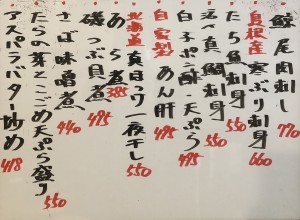 鮫尾肉刺し 770
島根産 寒ぶり刺身 660
たち魚刺身 550
活〆真刺身 550
白子ポン酢・天ぷら 495
自家製 あん肝 495
北海道 真ほっけ一夜干し 550
あら煮 385
磯つぶ貝煮 495
さば味噌煮 440
たらの芽とこごめ天ぷら盛り 550
アスパラバター炒め 418